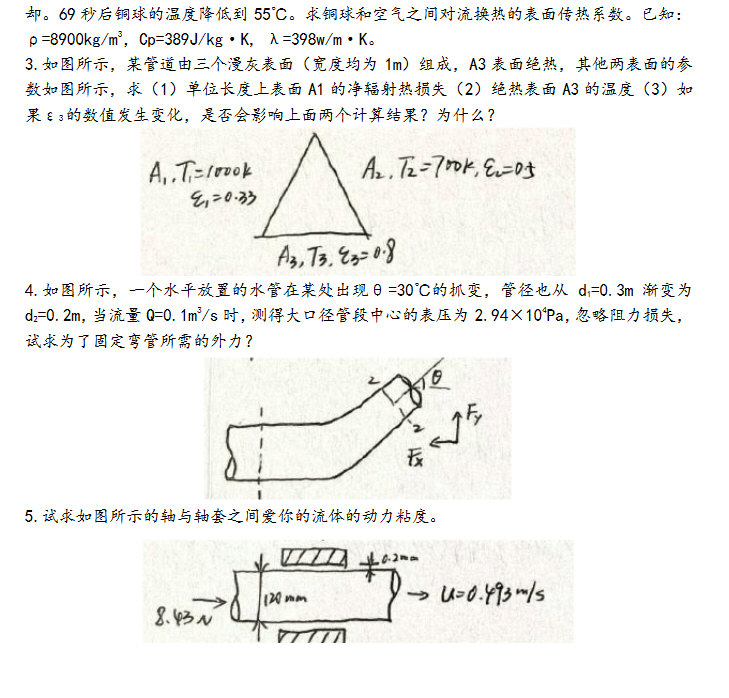 却。69 秒后铜球的温度降低到 55℃。求铜球和空气之间对流换热的表面传热系数。已知：
ρ=8900kg/m³, Cp=389J/kg·K, λ=398w/m·K。
3.如图所示，某管道由三个漫灰表面（宽度均为 1m）组成，A3 表面绝热，其他两表面的参
数如图所示，求（1）单位长度上表面 A1 的净辐射热损失（2）绝热表面 A3 的温度（3）如
果ε₃的数值发生变化，是否会影响上面两个计算结果？为什么？
A₁,T₁=1000k
ε₁=0.33
A₂,T₂=700K,ε₂=0.5
A₃,T₃,ε₃=0.8
4.如图所示，一个水平放置的水管在某处出现θ=30℃的抓变，管径也从 d₁=0.3m 渐变为
d₂=0.2m,当流量 Q=0.1m³/s 时,测得大口径管段中心的表压为 2.94×10⁴Pa,忽略阻力损失，
试求为了固定弯管所需的外力？
2
θ
2
Fy
Fx
5.试求如图所示的轴与轴套之间爱你的流体的动力粘度。
0.2mm
120mm
8.43N
u=0.493m/s